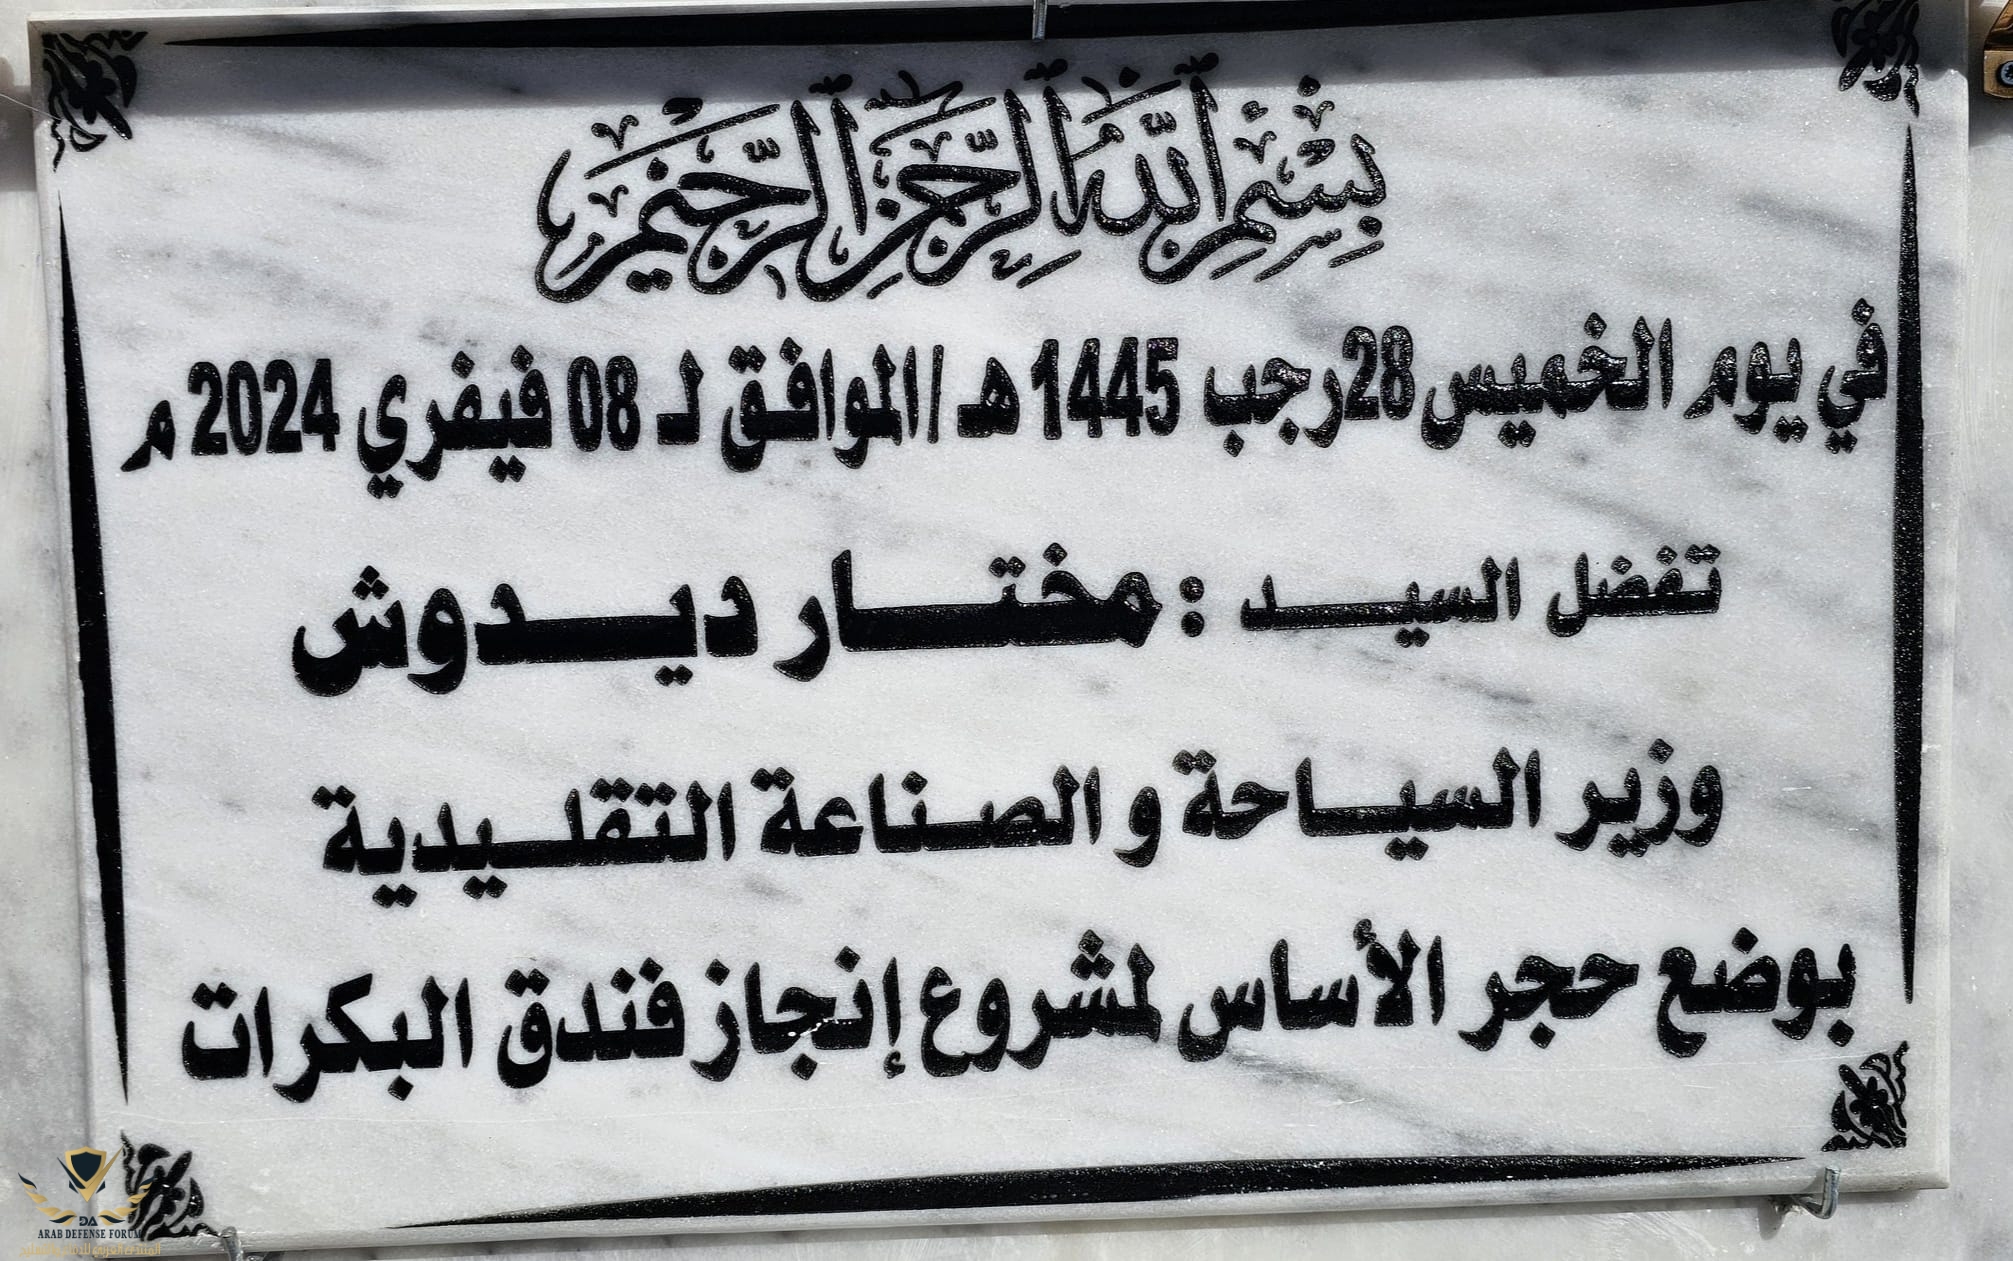 بسم الله الرحمن الرحيم
في يوم الخميس 28رجب 1445 هـ/الموافق لـ 08 فيفري 2024 م
تفضل السيد : مختار ديدوش
وزير السياحة و الصناعة التقليدية
بوضع حجر الأساس لمشروع إنجاز فندق البكرات
DA
ARAB DEFENSE FORUM